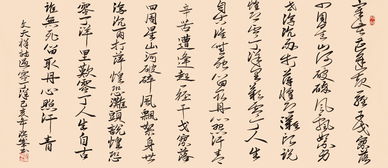 辛苦遭逢起一經干戈寥落
四周星山河破碎風飄絮身
世浮沉雨打萍惶恐灘頭説
惶恐零丁洋里歎零丁人生
自古誰無死留取丹心照汗青
辛苦遭逢起一經干戈寥落
四周星山河破碎風飄絮身世
浮沉雨打萍惶恐灘頭説惶恐
零丁洋里歎零丁人生自古
誰無死留取丹心照汗青
文天祥詩過零丁洋己亥年